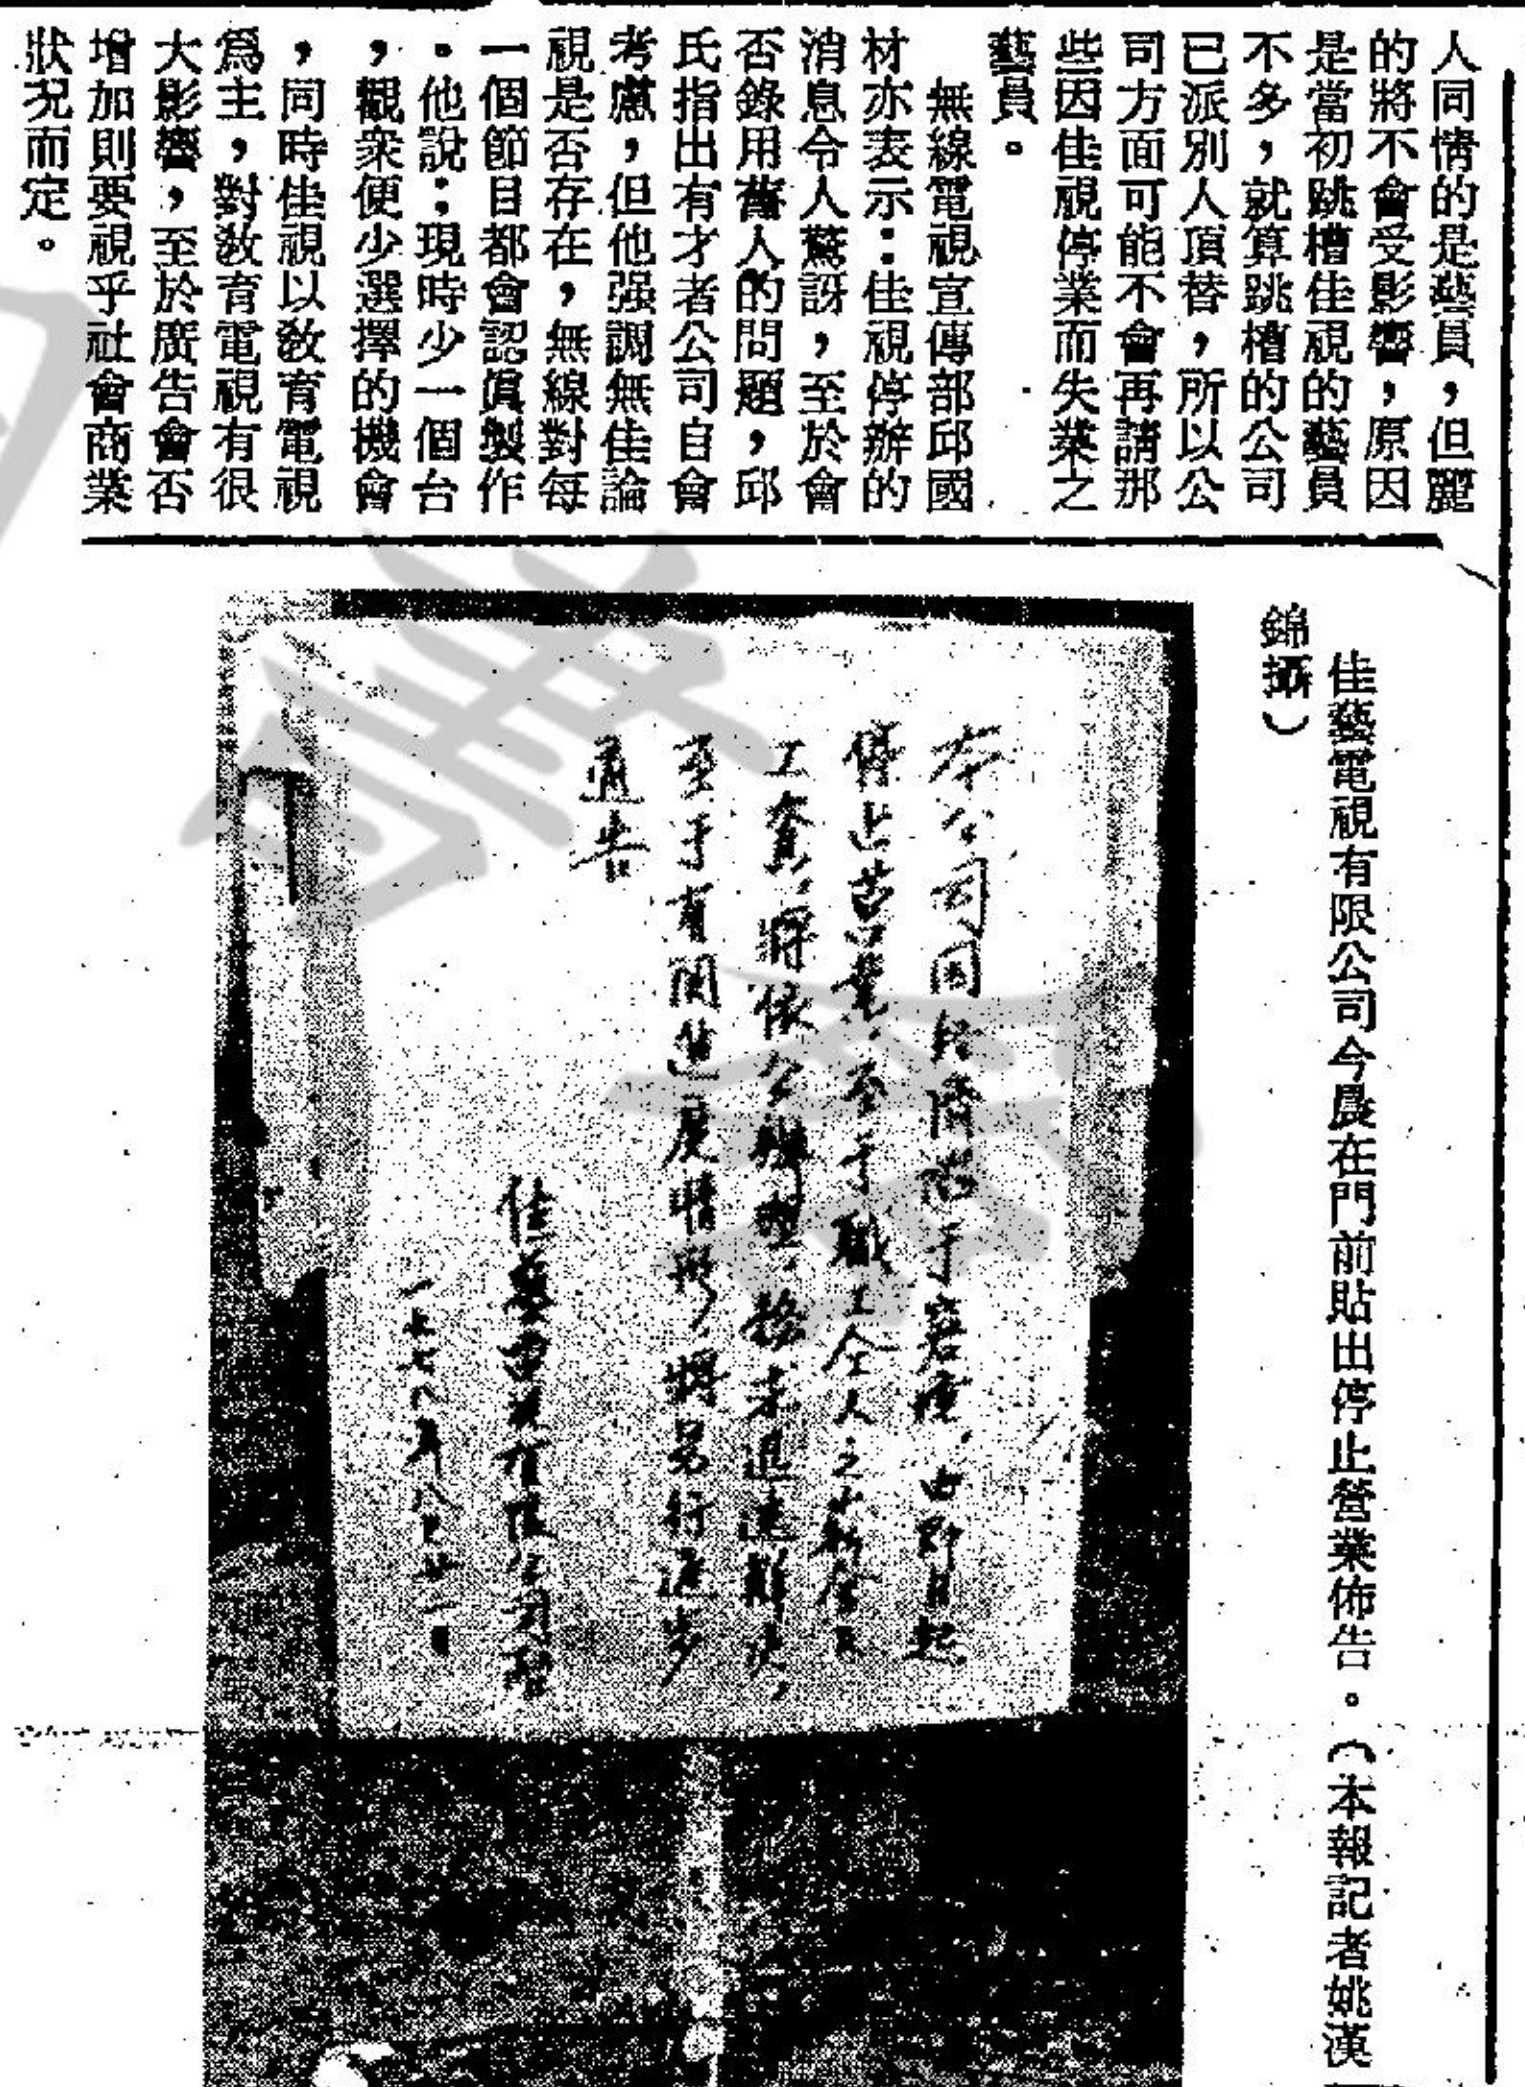 人同情的是藝員，但麗
的將不會受影響，原因
是當初跳槽佳視的藝員
不多，就算跳槽的公司
已派別人頂替，所以公
司方面可能不會再請那
些因佳視停業而失業之
藝員。
無線電視宣傳部邱國
材亦表示：佳視停辦的
消息令人驚訝，至於會
否錄用舊人的問題，邱
氏指出有才者公司自會
考慮，但他强調無佳論
視是否存在，無線對每
一個節目都會認眞製作
。他說：現時少一個台
，觀衆便少選擇的機會
，同時佳視以敎育電視
爲主，對敎育電視有很
大影響，至於廣告會否
增加則要視乎社會商業
狀況而定。
佳藝電視有限公司今晨在門前貼出停止營業佈告。（本報記者姚漢
錦攝）
本公司因經濟陷于窘境，由即日起
停止營業，至于職工全人之薪金及
工套，將依公司辦理，務求迅速解決，
至于有關進展情形，將另行逐步
通告
佳藝電視有限公司啓
一九七八年八月廿二日